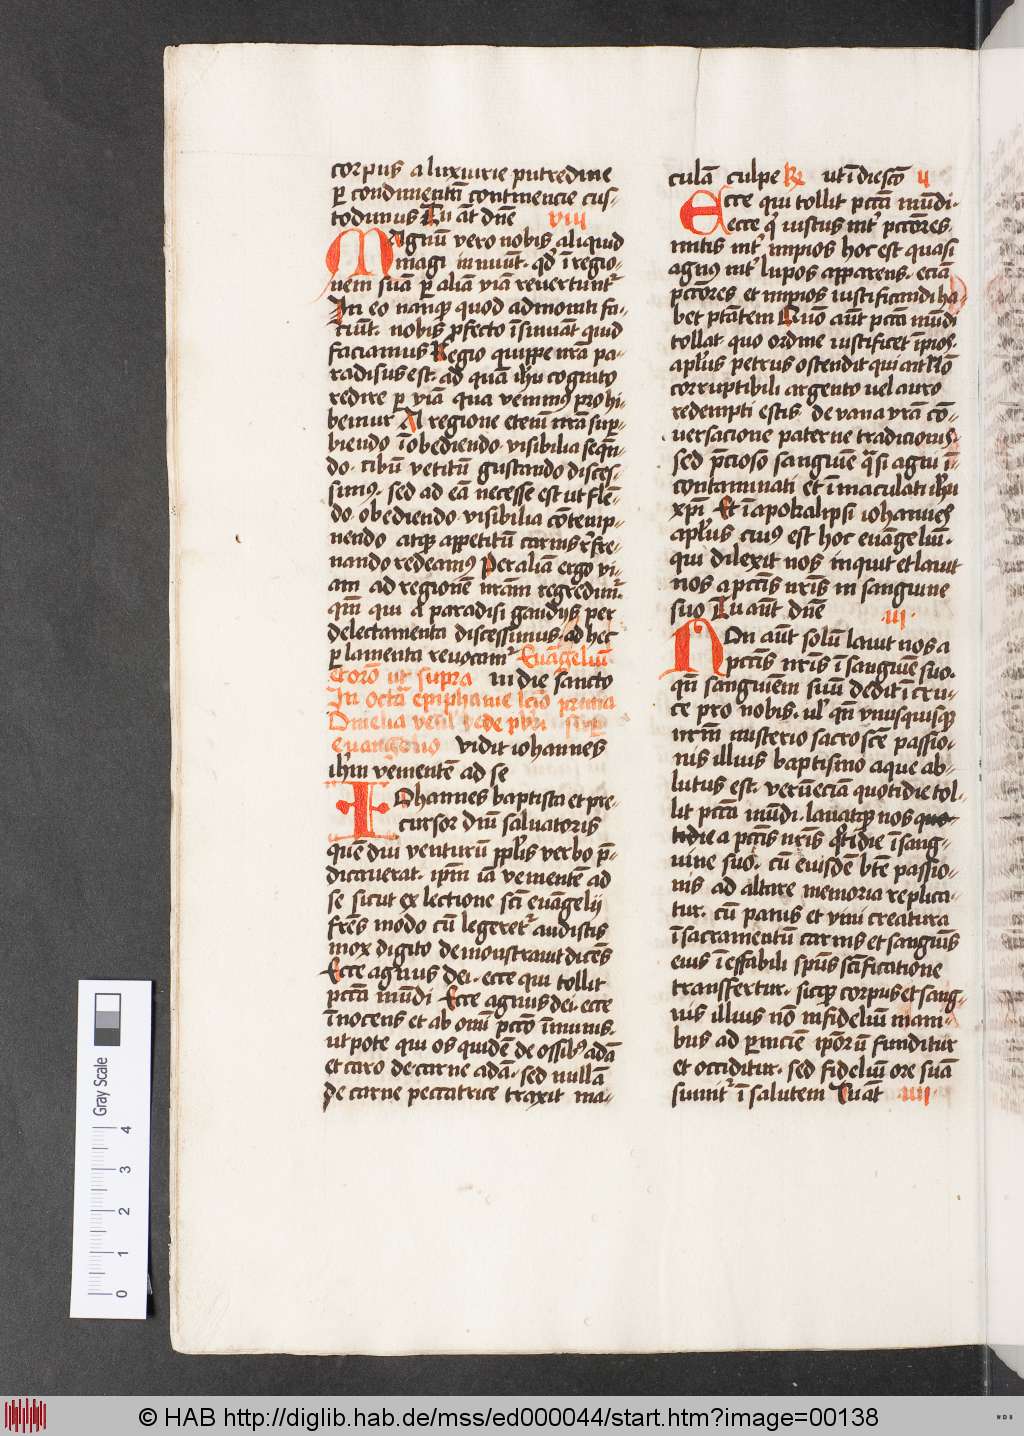 corpus a luxurie putredine
ꝑ condimentū continencie cus-
todimus Tu at dn̄e viii
MAgnū vero nobis aliquid
magi innuūt. qd̛ ī regio-
nem suā ꝑ aliā viā revertuntͬ
In eo nanq̛ quod admoniti fa-
ciūt. nobis ꝓfecto īsinuāt quid
faciamus Regio quippe nr̄a pa-
radisus est. ad quā ih̄u cognito
redire ꝑ viā qua venimꝰ prohi-
bemur A regione etenī nr̄a suꝑ-
biendo īobediendo. visibilia seqn̄-
do. cibū vetitū gustando disces-
simꝰ. sed ad eā necesse est ut flē-
do. obediendo. visibilia cōtemp-
nendo atq̛ appetitū carnis rͤfre-
nando redeamꝰ Per aliam ergo vi-
am ad regionē nr̄am regredimͬ.
qm̄ qui a paradisi gaudiis per
delectamenta discessimus. ad hec
ꝑ lamenta revocamͬ Euāgeliū
Coro͞ ut supra in die sancto
In octa͞ epiphanie lc̄io prima
Omelia ven̄l bede pbr̄i suꝑ
evangelio vidit iohannes
ih̄m venientē ad se
IOhannes baptista et pre-
cursor dn̄i salvatoris
quē diu venturū ppl̄is verbo p̄-
dicaverat. ip̄m iā venientē ad
se sicut ex lectione sc̄i evāgelij
frēs modo cū legeretͬ audistis
mox digito demonstravit dicēs
Ecce agnus dei. ecce qui tollit
pctā mūdi Ecce agnus dei. ecce
īnocens et ab omī pctō īmunis.
utpote qui os quidē de ossibꝰ adā
et caro de carne adā. sed nullā
de carne peccatrice traxit ma-
culā culpe R̄ ut ī diesctō ii
Ecce qui tollit pctā mūdi.
ecce qͥ iustus intͬ pctōres.
mitis intͬ impios hoc est quasi
agnꝰ intͬ lupos apparens. eciā
pctōres et impios iustificandi ha-
bet ptātem Quō aūt pctā mūdi
tollat. quo ordine iustificet īpios.
apl̄us petrus ostendit qui ait Nō
corruptibili argento vel auro
redempti estis de vana vr̄a cō-
versacione paterne tradicionis.
sed p̄cioso sanguīe qͣsi agni ī-
contaminati et īmaculati ih̄u
xp̄i Et ī apokalipsi iohannes
apl̄us cuiꝰ est hoc evāgeliū.
qui dilexit nos inquit et lavit
nos a pctīs nr̄is in sanguine
suo Tu aūt dn̄e iii.
NOn aūt solū lavit nos a
pctīs nr̄is ī sanguīe suo.
qn̄ sanguinem suū dedit ī cru-
ce pro nobis. ul̛ qn̄ unusquisq̛
nr̄m misterio sacrosc̄e passio-
nis illius baptismo aque ab-
lutus est. verū eciā quotidie tol-
lit pctā mūdi. lavatq̛ nos quo-
tidie a pctīs nr̄is qͦtidie ī sang-
uine suo. cū eiusdē bt̄e passio-
nis ad altare memoria replica-
tur. cū panis et vini creatura
ī sacramentū carnis et sanguīs
eius ī effabili spūs sc̄ificatione
transfertur. sicq̛ corpus et sang-
uis illius nō infideliū mani-
bus ad ꝑniciē ip̄orū funditur
et occiditur. sed fideliū ore suā
sumitͬ ī salutem Tu aūt iiii.
Gray Scale
0 1 2 3 4
© HAB http://diglib.hab.de/mss/ed000044/start.htm?image=00138